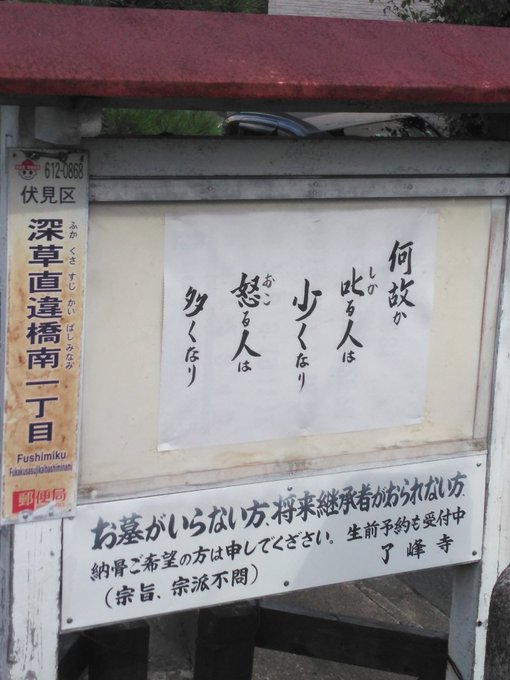 612-0868
伏見区
ふかくさすじかいばしみなみ
深草直違橋南一丁目
Fushimiku
Fukakusasujikaibashiminami
郵便局
何故か
しか
叱る人は
少くなり
おこ
怒る人は
多くなり
お墓がいらない方、将来継承者がおられない方、
納骨ご希望の方は申しでください。生前予約も受付中
(宗旨、宗派不問)
了峰寺